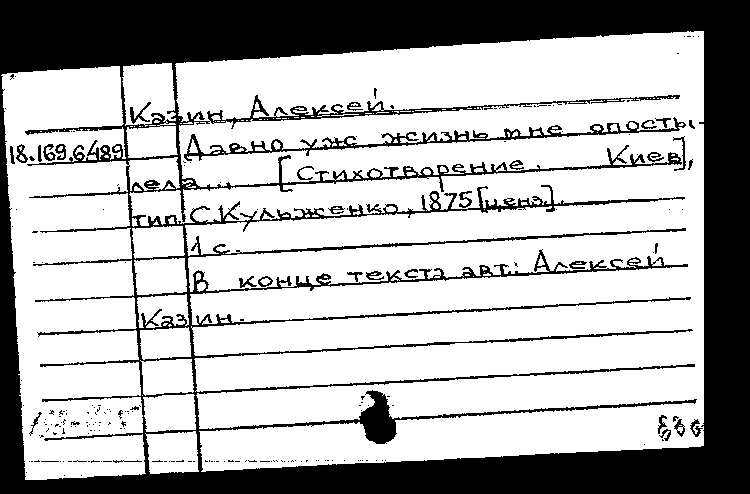 Казин, Алексей.
18.169.6489 Давно уж жизнь мне опосты-
лела... [Стихотворение. Киев],
тип. С. Кульженко, 1875 [ценз.].
1 с.
В конце текста авт.: Алексей
Казин.